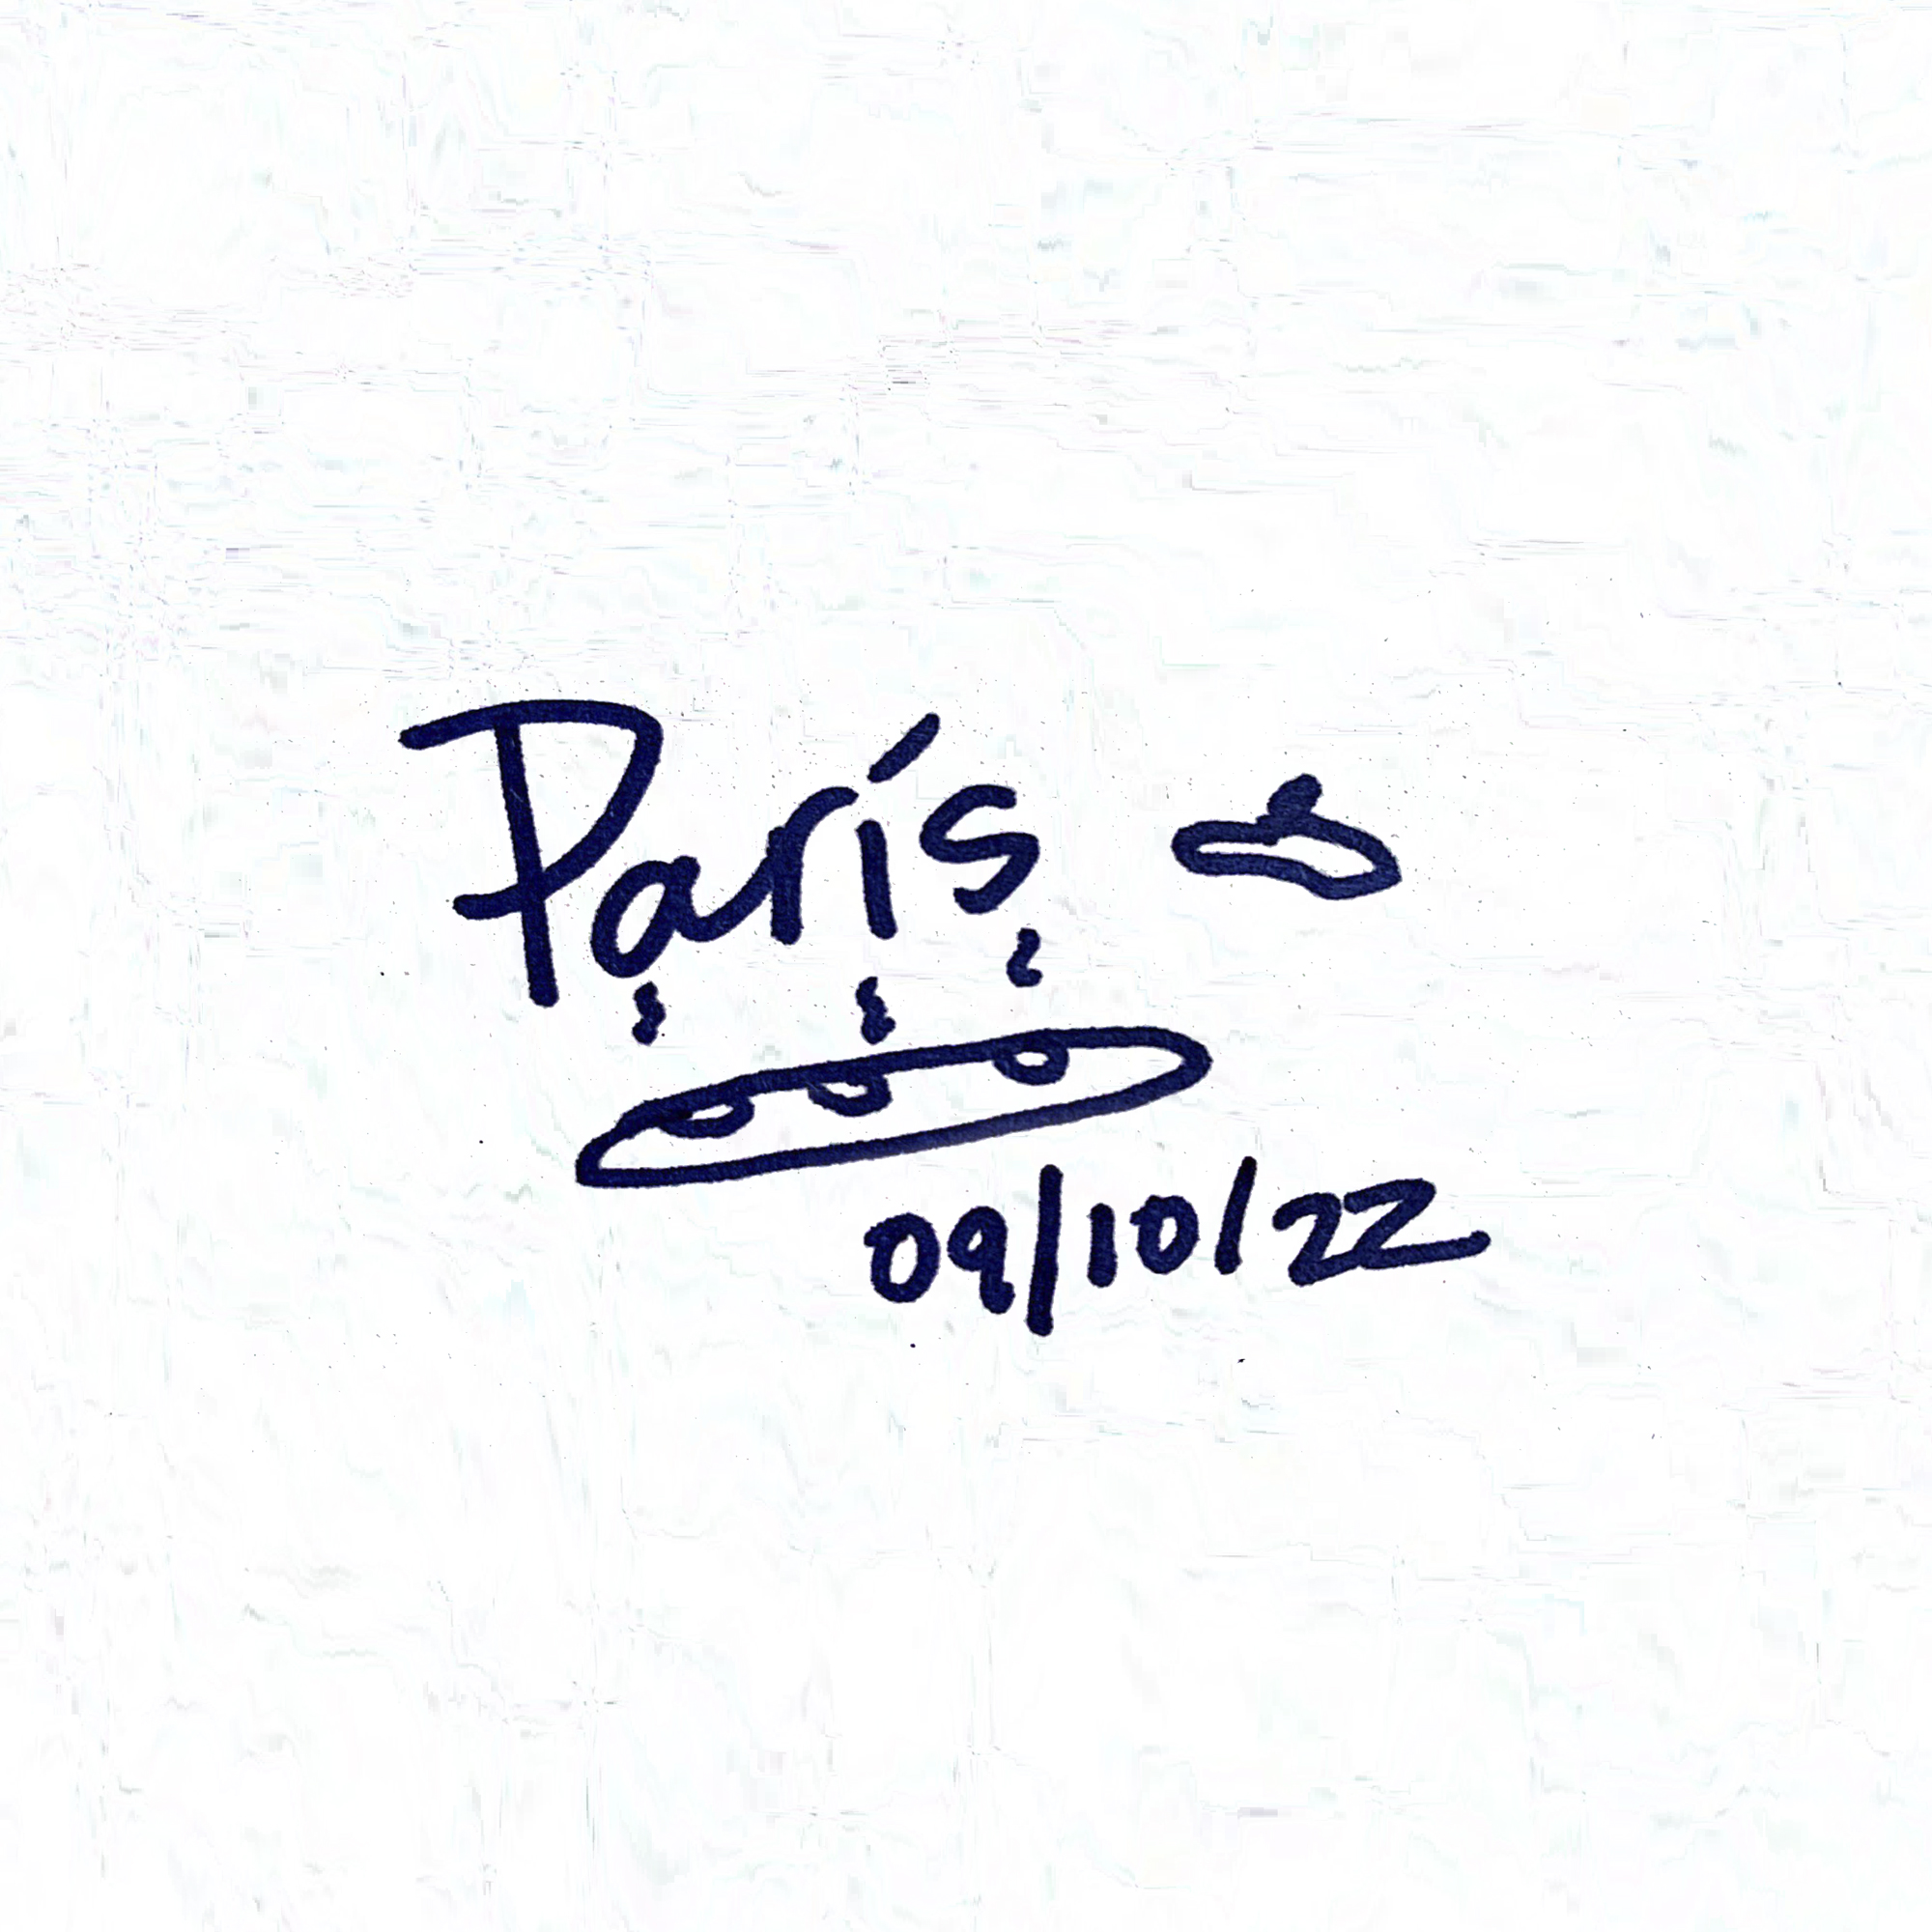 París
09/10/22